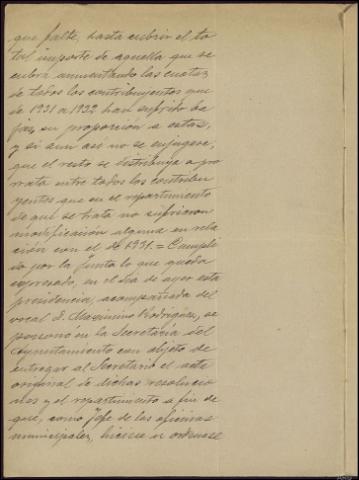 que falte, hasta cubrir el to-
tal importe de aquella que se
cubra aumentando las cuotas
de todos los contribuyentes que
de 1931 a 1932 han sufrido ba-
jas, en proporción a estas,
y si aun asi no se enjugase,
que el resto se distribuya a pro
rrata entre todos los contribu
yentes que en el repartimiento
de que se trata no sufrieron
modificación alguna en rela
ción con el de 1931.= Cumpli
do por la Junta lo que queda
expresado, en el dia de ayer esta
presidencia, acompañada del
vocal D. Maximino Rodriguez, se
personó en la Secretaría del
Ayuntamiento con objeto de
entregar al Secretario el acta
original de dichas resolucio
nes y el repartimiento a fin de
que, como Jefe de las oficinas
municipales, hiciese u ordenase